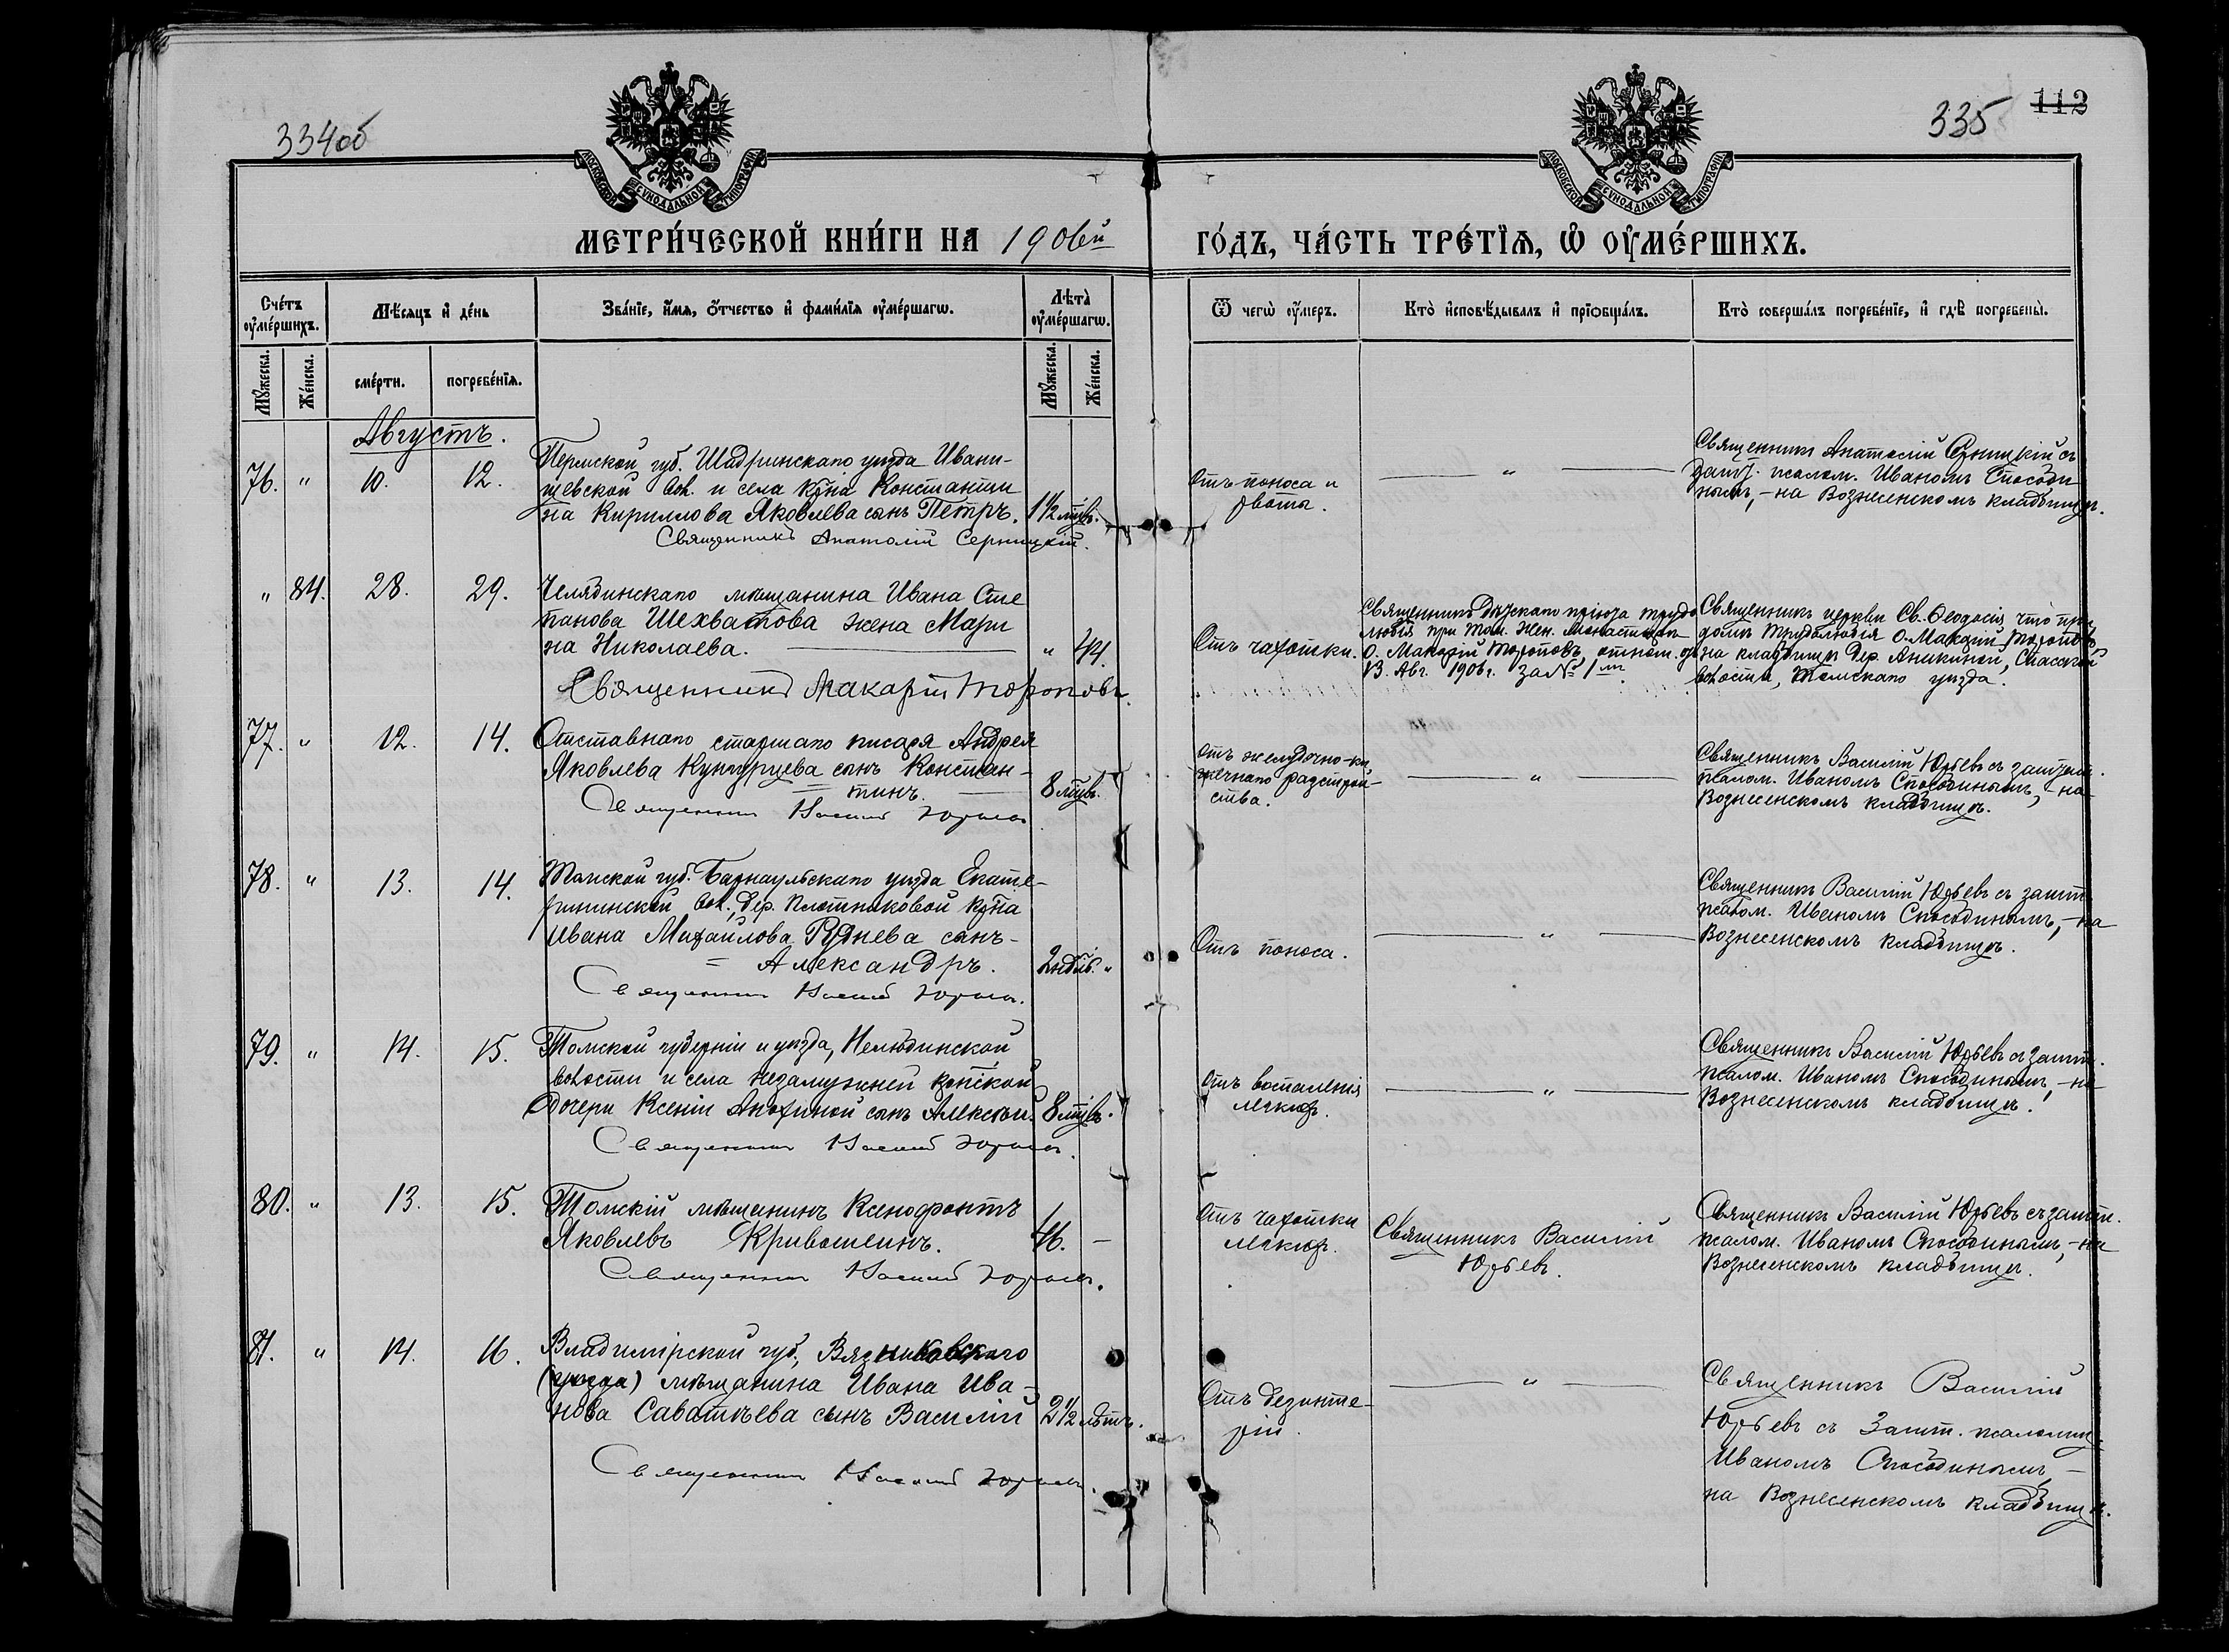 334об
335
112
МОСКОВСКОЙ СѴНОДАЛЬНОЙ ТИПОГРАФІИ
МОСКОВСКОЙ СѴНОДАЛЬНОЙ ТИПОГРАФІИ
МЕТРИ́ЧЕСКОЙ КНИ́ГИ НА 1906й
ГО́ДЪ, ЧА́СТЬ ТРЕ́ТЇѦ, Ѡ҆ ОУ҆МЕ́РШИХЪ.
Сче́тъ оу҆ме́ршихъ.
Мѣ́сяцъ и҆ де́нь
Зва́нїе, и҆́мѧ, ѻ҆́тчество и҆ фами́лїѧ оу҆ме́ршагѡ.
Лѣта̀ оу҆ме́ршагѡ.
Ѿ чегѡ̀ оу҆́меръ.
Кто̀ и҆сповѣ́дывалъ и҆ прїѡбща́лъ.
Кто̀ соверша́лъ погребе́нїе, и҆ гдѣ̀ погребены̀.
Мꙋ́жеска.
Же́нска.
сме́рти.
погребе́нїѧ.
Мꙋ́жеска.
Же́нска.
Августъ.
76. " 10. 12.
Пермской губ. Шадринскаго уѣзда Ивани-
щевской вол. и села кр-на Константи
на Кириллова Яковлева сынъ Петръ. 1½ мцв.
Священникъ Анатолій Серницкій.
Отъ поноса и
рвоты.
"
Священникъ Анатолій Серницкій съ
зашт. псалом. Иваномъ Способи
нымъ, - на Вознесенскомъ кладбищѣ.
" 84. 28. 29.
Челябинскаго мѣщанина Ивана Сте
панова Шехватова жена Мари
на Николаева. " 44.
Священникъ Макарій Торопов.
Отъ чахотки.
Священникъ дѣтскаго пріюта трудо
любія при Том. Жен. Монастырѣ
О. Макарій Тороповъ, отнош. отъ
13. Авг. 1906г. за № 1м
Священникъ церкви Св. Ѳеодосія что при
домѣ трудолюбія О. Макарій Тороповъ
на кладбищѣ дер. Аникиной, Спасской
волости, Томскаго уѣзда.
77. " 12. 14.
Отставнаго старшаго писаря Андрея
Яковлева Кунгурцева сынъ Констан-
= тинъ. 8 мцв.
Священникъ Василій Юрьевъ
отъ желудочно-ки
шечнаго разстрой-
ства.
"
Священникъ Василій Юрьевъ съ заштат.
псалом. Иваномъ Способинымъ, - на
Вознесенскомъ кладбищѣ.
78. " 13. 14.
Томской губ. Барнаульскаго уѣзда Екате-
рининской вол., дер. Плотниковой кр-на
Ивана Михайлова Руднева сынъ -
= Александръ. 2 ндѣл. "
Священникъ Василій Юрьевъ.
Отъ поноса.
"
Священникъ Василій Юрьевъ съ зашт.
псалом. Иваномъ Способинымъ, - на
Вознесенскомъ кладбищѣ.
79. " 14. 15.
Томской губерніи и уѣзда, Нелюбинской
волости и села незамужней крестьянской
дочери Ксеніи Анохиной сынъ Алексѣй. 8 мцв.
Священникъ Василій Юрьевъ.
Отъ воспаленія
легкихъ.
"
Священникъ Василій Юрьевъ съ зашт.
псалом. Иваномъ Способинымъ, - на
Вознесенскомъ кладбищѣ.
80. " 13. 15.
Томскій мѣщанинъ Ксенофонтъ
Яковлевъ Кривошеинъ. 46. -
Священникъ Василій Юрьевъ.
Отъ чахотки
легкихъ.
Священникъ Василій
Юрьевъ.
Священникъ Василій Юрьевъ съ зашт.
псалом. Иваномъ Способинымъ, - на
Вознесенскомъ кладбищѣ.
81. " 14. 16.
Владимірской губ., Вязниковскаго
(уѣзда) мѣщанина Ивана Ива-
нова Саватѣева сынъ Василій 2½ лѣтъ.
Священникъ Василій Юрьевъ.
Отъ дезинте-
ріи.
"
Священникъ Василій
Юрьевъ съ Зашт. псаломщ.
Иваномъ Способинымъ, -
на Вознесенскомъ кладбищѣ.